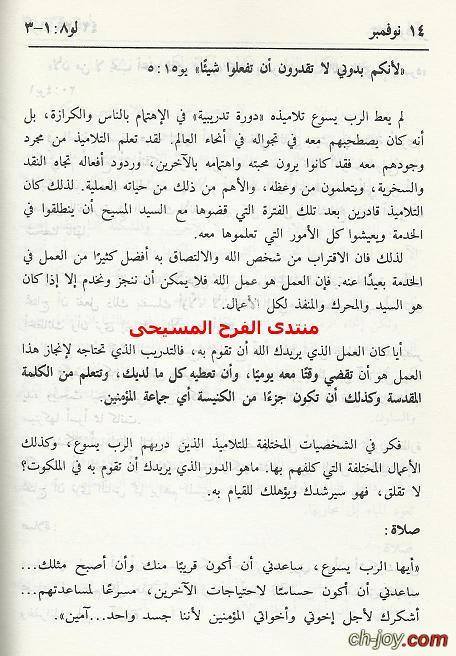 ١٤ نوفمبر لو٨: ١-٣
«لأنكم بدوني لا تقدرون أن تفعلوا شيئًا» يو١٥: ٥
لم يعط الرب يسوع تلاميذه «دورة تدريبية» في الإهتمام بالناس والكرازة، بل
أنه كان يصطحبهم معه في تجواله في أنحاء العالم. لقد تعلم التلاميذ من مجرد
وجودهم معه فقد كانوا يرون محبته واهتمامه بالآخرين، وردود أفعاله تجاه النقد
والسخرية، ويتعلمون من وعظه، والأهم من ذلك من حياته العملية. لذلك كان
التلاميذ قادرين بعد تلك الفترة التي قضوها مع السيد المسيح أن ينطلقوا في
الخدمة ويعيشوا كل الأمور التي تعلموها معه.
لذلك فان الاقتراب من شخص الله والالتصاق به أفضل كثيرًا من العمل في
الخدمة بعيدًا عنه. فإن العمل هو عمل الله فلا يمكن أن ننجز ونخدم إلا إذا كان
هو السيد والمحرك والمنفذ لكل الأعمال.
منتدى الفرح المسيحى
أيا كان العمل الذي يريدك الله أن تقوم به، فالتدريب الذي تحتاجه لإنجاز هذا
العمل هو أن تقضي وقتًا معه يوميًا، وأن تعطيه كل ما لديك، وتتعلم من الكلمة
المقدسة وكذلك أن تكون جزءًا من الكنيسة أي جماعة المؤمنين.
فكر في الشخصيات المختلفة للتلاميذ الذين دربهم الرب يسوع، وكذلك
الأعمال المختلفة التي كلفهم بها. ماهو الدور الذي يريدك أن تقوم به في الملكوت؟
لا تقلق، فهو سيرشدك ويؤهلك للقيام به.
صلاة:
«أيها الرب يسوع، ساعدني أن أكون قريبًا منك وأن أصبح مثلك...
ساعدني أن أكون حساسًا لاحتياجات الآخرين، مسرعًا لمساعدتهم...
أشكرك لأجل إخوتي وأخواتي المؤمنين لأننا جسد واحد...آمين».
ch-joy.com